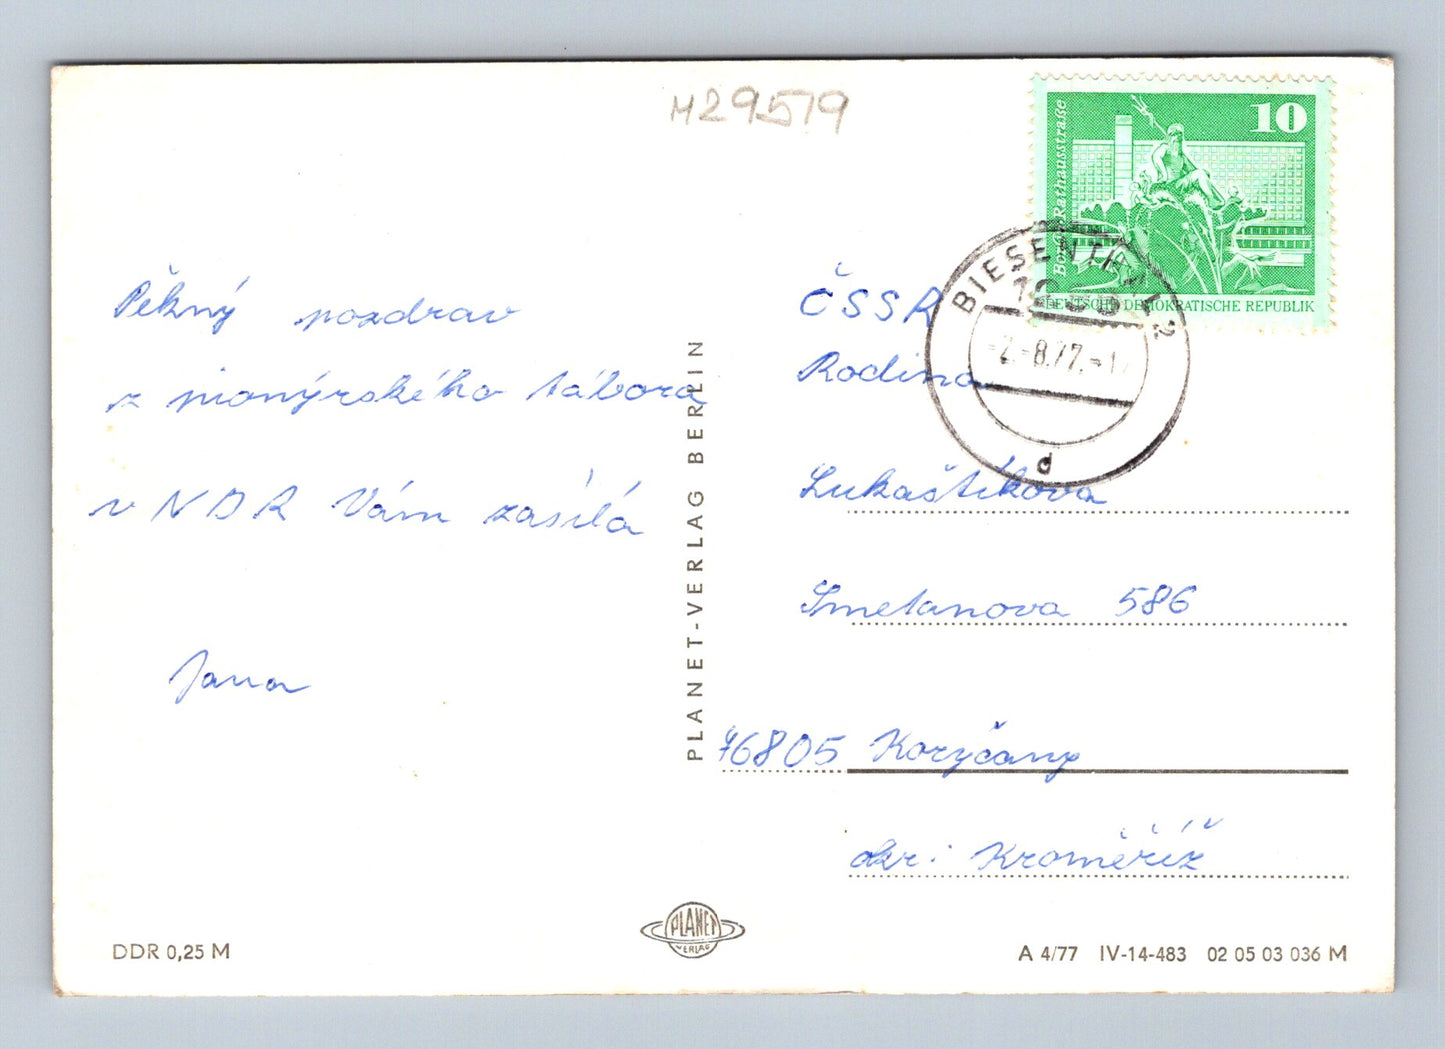 M29579
10
Rathausstraße
DEUTSCHE DEMOKRATISCHE REPUBLIK
BIESENTHAL 2
-2.-8.77.-1
d
Pěkný pozdrav
z pionýrského tábora
v NDR Vám zasílá
Jana
PLANET-VERLAG BERLIN
ČSSR
Rodina
Lukaštíkova
Smetanova 586
76805 Koryčany
okr: Kroměříž
PLANET
VERLAG
DDR 0,25 M
A 4/77 IV-14-483 02 05 03 036 M